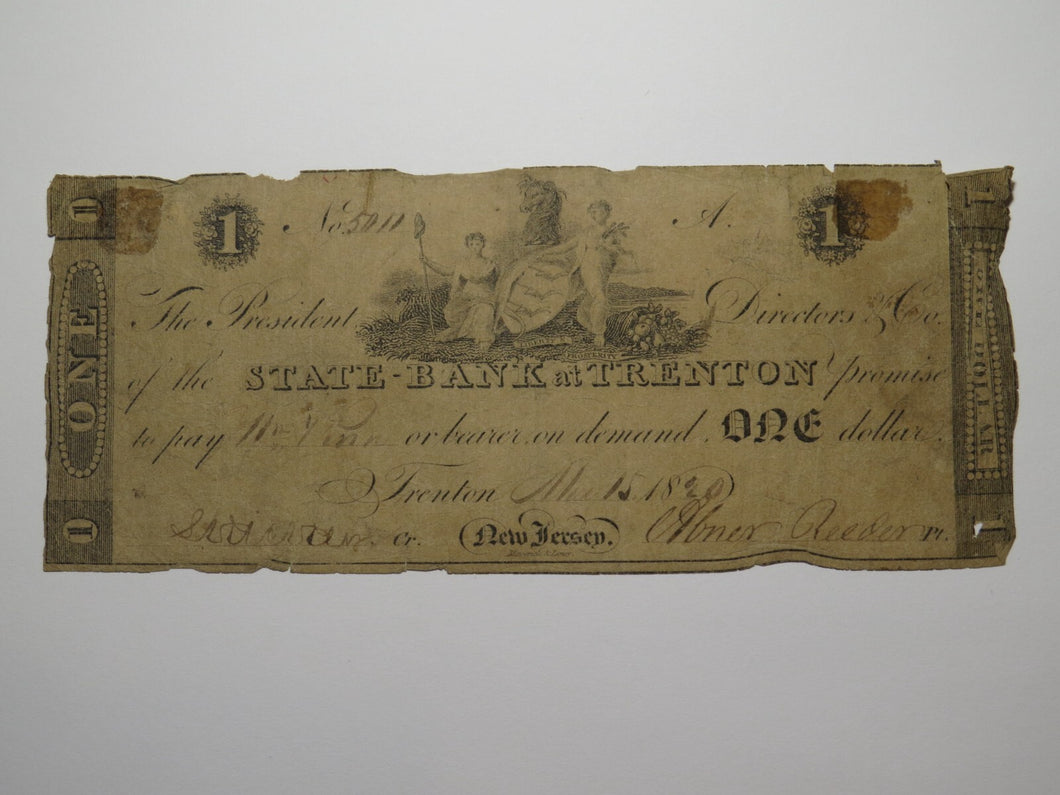 1 No. A. 1
The President Directors & Co.
of the STATE-BANK at TRENTON promise
to pay Wm Penn or bearer on demand ONE dollar.
Trenton 15 1820
Cr. New Jersey. Abner Reeder Pt.
1
ONE
1
1
ONE DOLLAR
1
LIBERTY & PROSPERITY